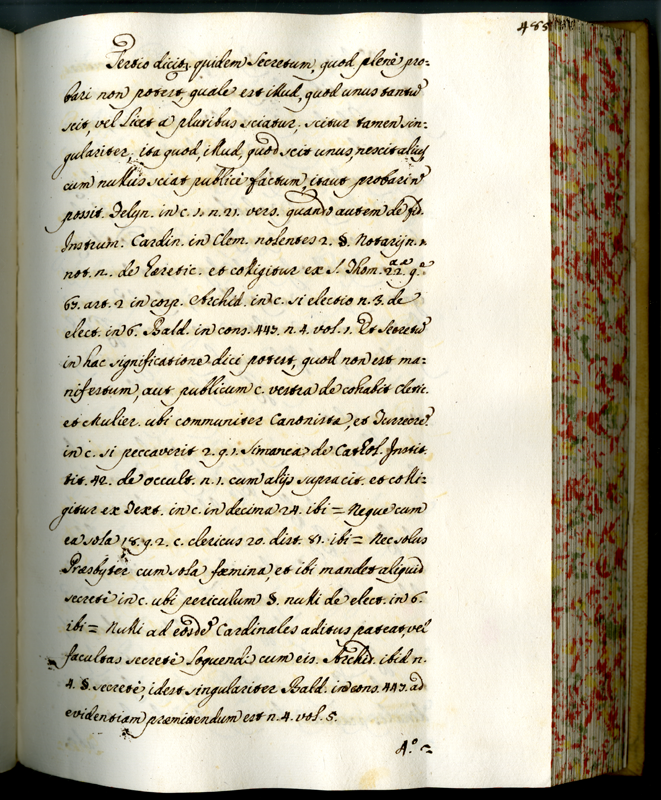 485
Tertio dicitr. quidem Secretum, quod plenè pro=
bari non potest, quale est illud, quod unus tantũ
scit, vel licet a pluribus sciatur, scitur tamen sin=
gulariter, ita quod, illud, quod scit unus, nescit alius,
cum nullus sciat publicè factum, itaut probari nõ
possit. Felyn. in c. 1. n. 21. vers. quando autem de fid.
Instrum. Cardin. in Clem. nolentes 2. §. Notarij n. 1.
not. n. de heretic. et colligitur ex S. Thom. 22. q.
63. art. 2 in corp. Archid. in c. si electio n. 3. de
elect. in 6. Bald. in cons. 443. n. 4. vol. 1. Et Secretũ
in hac significatione dici potest, quod non est ma=
nifestum, aut publicum c. vestra de cohabit Cleric.
et Mulier. ubi communiter Canonistæ, et Turrecre.
in c. si peccaverit 2. q. 1. Simanca de Cathol. Instit.
tit. 42. de occult. n. 1. cum alijs supra cit. et colli=
gitur ex Text. in c. in decima 24. ibi = Neque cum
ea sola 18. q. 2. c. clericus 20. dist. 81. ibi = Nec solus
Præsbyter cum sola fœmina, et ibi mandet aliquid
secretè in c. ubi periculum §. nulli de elect. in 6.
ibi = Nulli ad eosdẽ Cardinales aditus pateat, vel
facultas secretè loquendi cum eis. Archid. ibid. n.
4. §. secretè, idest singulariter Bald. in cons. 443. ad
evidentiam præmittendum est n. 4. vol. 5.
4.º